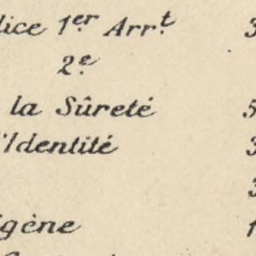 lice 1er Arrt 3
2e
la Sûreté 5
l'Identité 3
3
igène 1